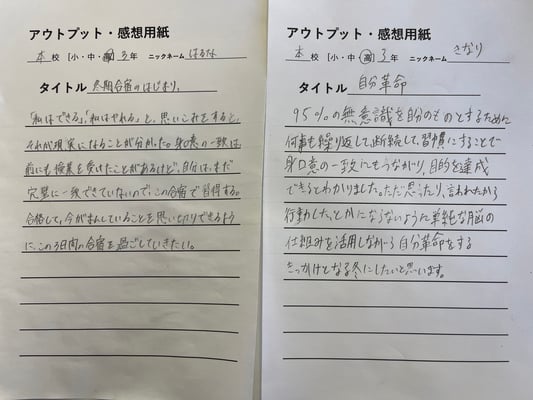 アウトプット・感想用紙
本 校 [小・中・高] 3年 ニックネーム はるな
タイトル 冬期合宿のはじまり。
「私はできる」「私はやれる」と、思いこみをすると、
それが現実になることが分かった。身口意の一致は、
前にも授業を受けたことがあるけど、自分は、まだ
完璧に一致できていないので、この合宿で習得する。
合格して、今がまんしていることを思い切りできるよう
に、この3日間の合宿を過ごしていきたい。
アウトプット・感想用紙
本 校 [小・中・高] 3年 ニックネーム きなり
タイトル 自分革命
95%の無意識を自分のものとするために
何事も繰り返して、断続して、習慣にすることで
身口意の一致にもつながり、目的を達成
できるとわかりました。ただ思ったり、言われたから
行動した、とかにならないように単純な脳の
仕組みを活用しながら自分革命をする
きっかけとなる冬にしたいと思います。